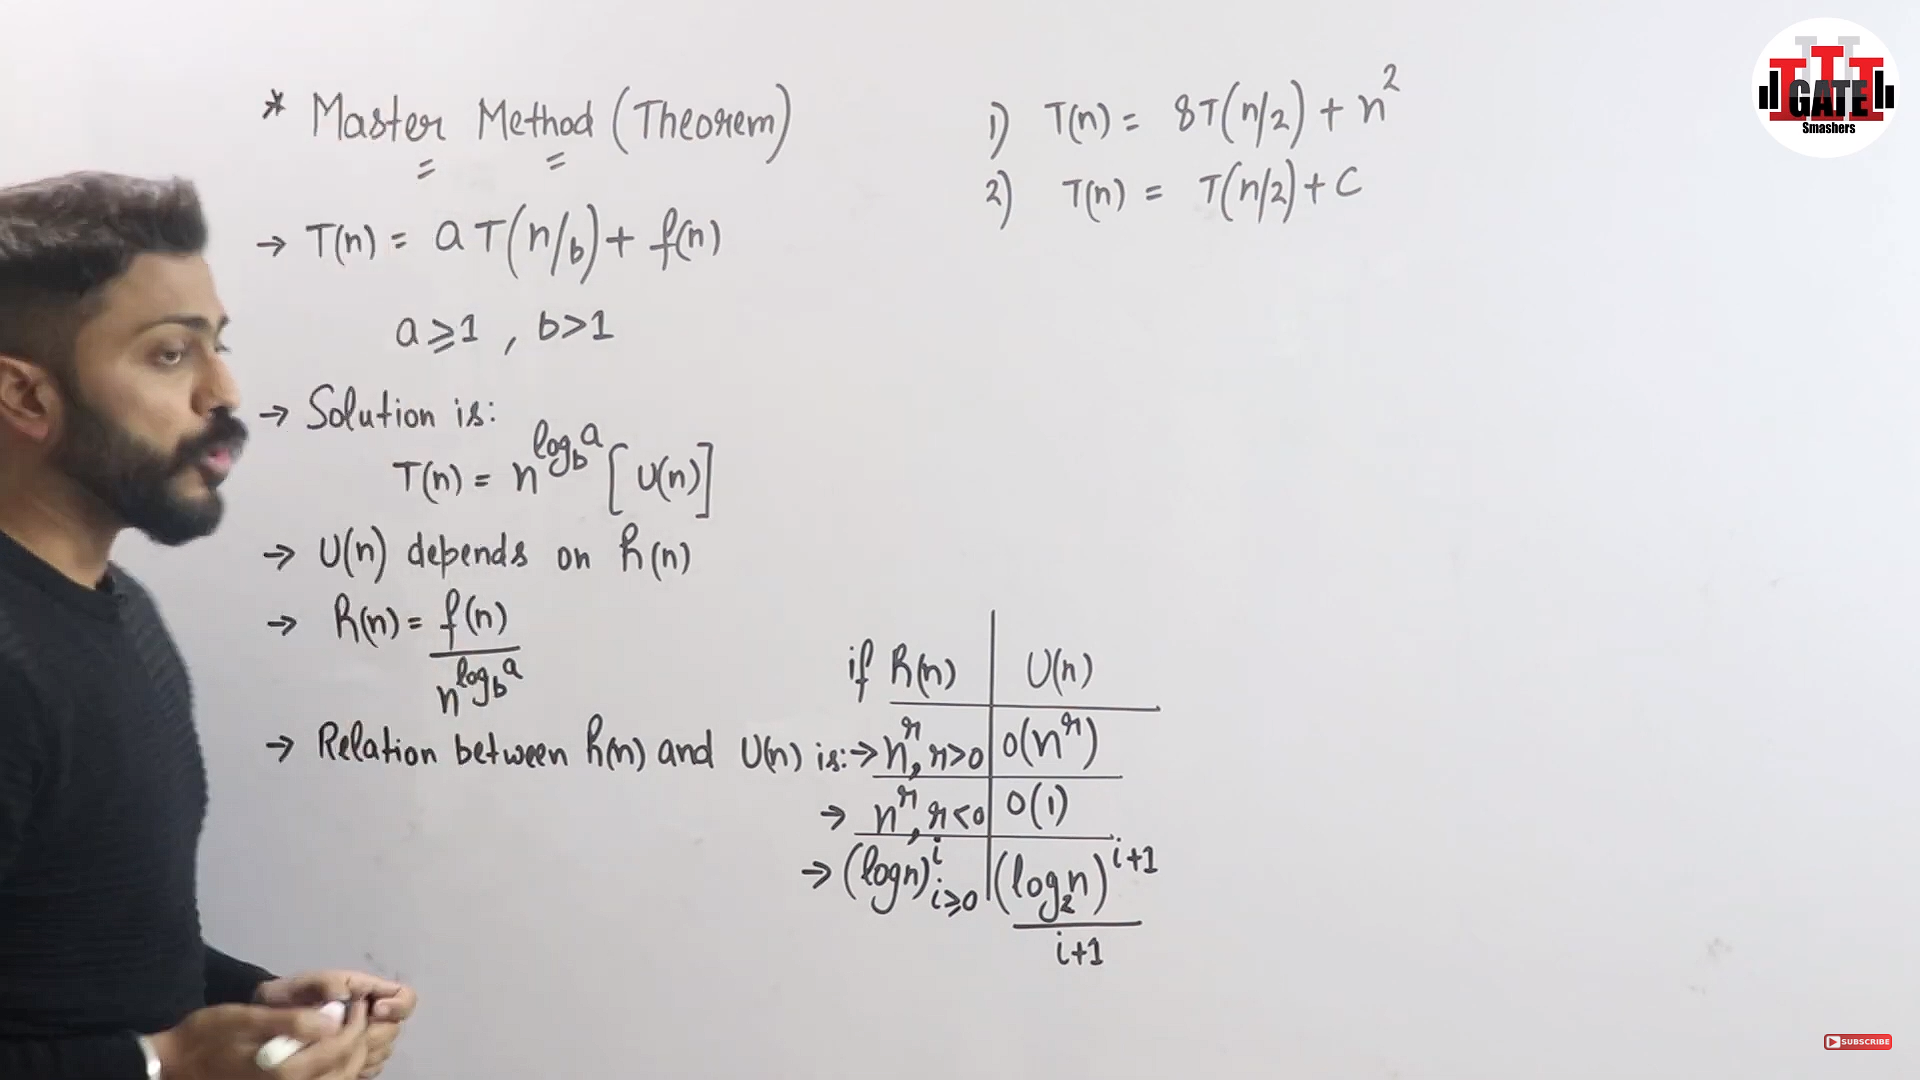 * Master Method (Theorem)
→ T(n) = aT(n/b) + f(n)
a ≥ 1 , b > 1
→ Solution is:
T(n) = n^(log_b a) [U(n)]
→ U(n) depends on h(n)
→ h(n) = f(n) / n^(log_b a)
→ Relation between h(n) and U(n) is:→
if h(n) | U(n)
n^r, r>0 | O(n^r)
→ n^r, r<0 | O(1)
→ (log n)^i, i≥0 | (log_2 n)^(i+1) / i+1
1) T(n) = 8T(n/2) + n^2
2) T(n) = T(n/2) + C
GATE
Smashers
SUBSCRIBE